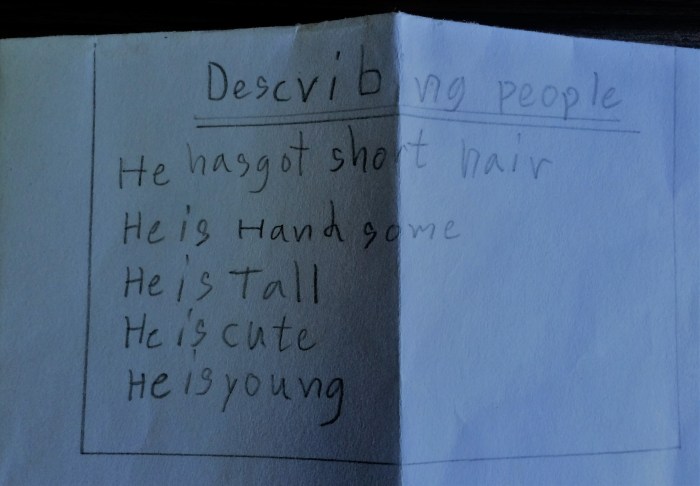 Describing people
He hasgot short hair
He is Handsome
He is Tall
He is cute
He is young